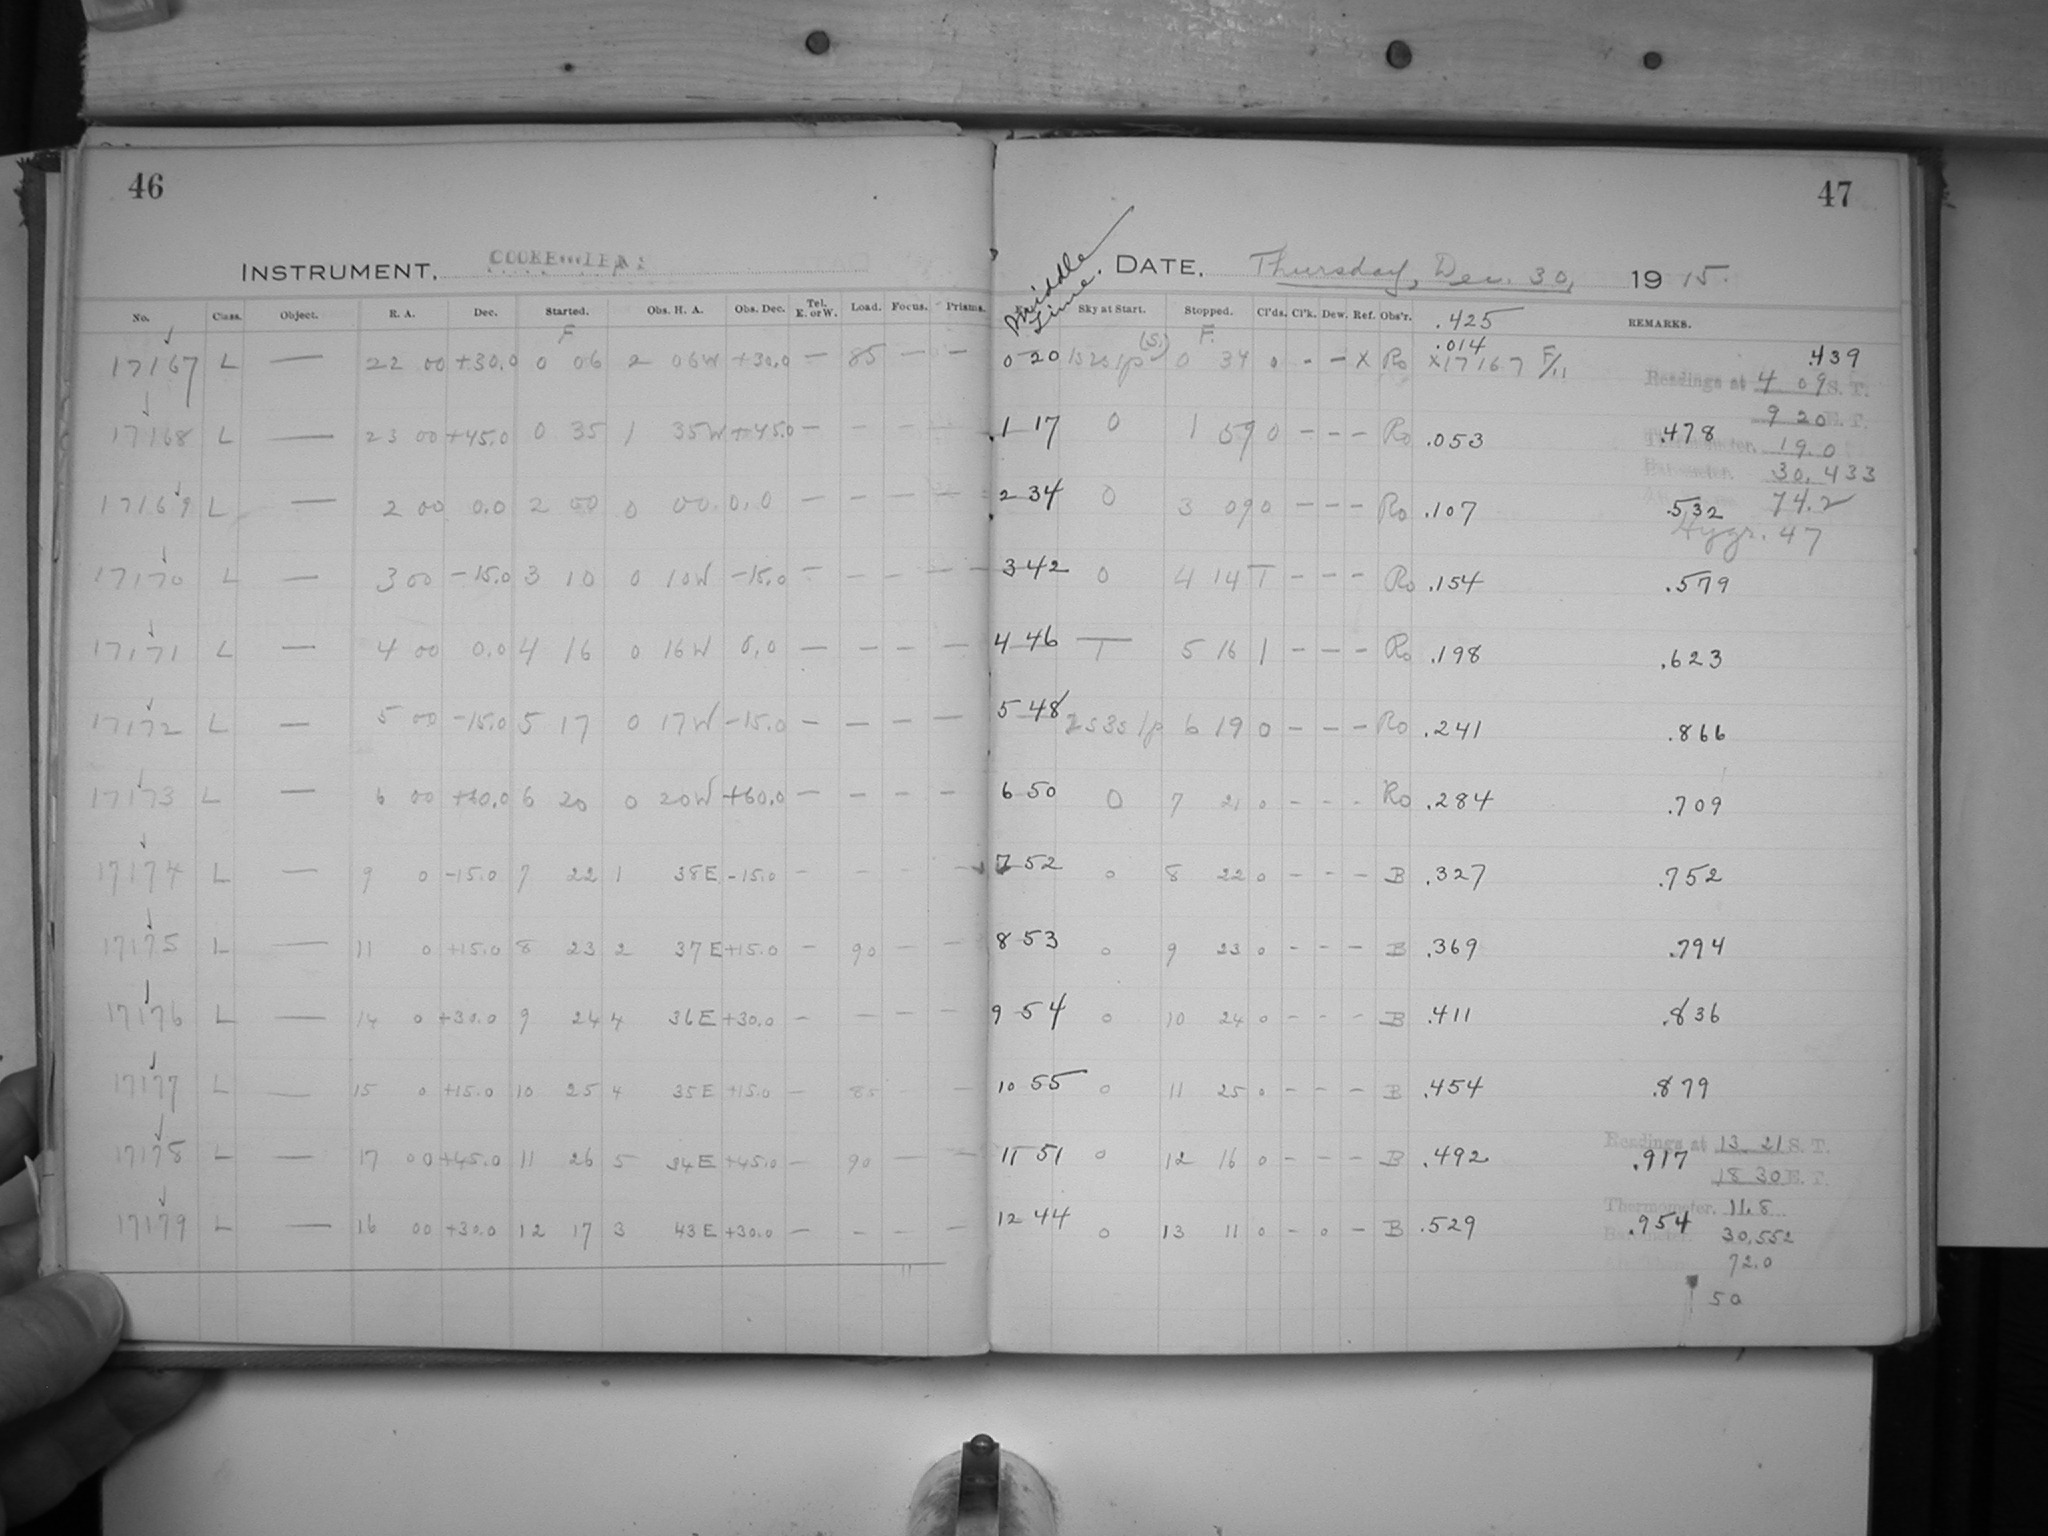 46
INSTRUMENT. COOKE
No. Class. Object. R. A. Dec. Started. Obs. H. A. Obs. Dec. Tel. E. or W. Load. Focus. Prisms.
F
17167 L — 22 00 +30.0 0 06 2 06W +30.0 — 85 — —
17168 L — 23 00 +45.0 0 35 1 35W +45.0 — — — —
17169 L — 2 00 0.0 2 00 0 00 0.0 — — — —
17170 L — 3 00 -15.0 3 10 0 10W -15.0 — — — —
17171 L — 4 00 0.0 4 16 0 16W 0.0 — — — —
17172 L — 5 00 -15.0 5 17 0 17W -15.0 — — — —
17173 L — 6 00 +60.0 6 20 0 20W +60.0 — — — —
17174 L — 9 0 -15.0 7 22 1 38E -15.0 — — — —
17175 L — 11 0 +15.0 8 23 2 37E +15.0 — 90 — —
17176 L — 14 0 +30.0 9 24 4 36E +30.0 — — — —
17177 L — 15 0 +15.0 10 25 4 35E +15.0 — 85 — —
17178 L — 17 00 +45.0 11 26 5 34E +45.0 — 90 — —
17179 L — 16 00 +30.0 12 17 3 43E +30.0 — — — —
47
Middle Time. DATE. Thursday, Dec. 30, 1915.
Sky at Start. Stopped. Cl'ds. Cl'k. Dew. Ref. Obs'r. .425 REMARKS.
(S.) F. .014
0 20 0 34 0 - - X Ro X17167 F/11 .439
Readings at 4 09 S. T.
9 20 E. T.
1 17 0 1 59 0 - - - Ro .053 .478
Thermometer. 19.0
Barometer. 30.433
2 34 0 3 09 0 - - - Ro .107 .532 74.2
Hygr. 47
3 42 0 4 14 T - - - Ro .154 .579
4 46 T 5 16 1 - - - Ro .198 .623
5 48 2s3s1p 6 19 0 - - - Ro .241 .866
6 50 0 7 21 0 - - - Ro .284 .709
7 52 0 8 22 0 - - - B .327 .752
8 53 0 9 23 0 - - - B .369 .794
9 54 0 10 24 0 - - - B .411 .836
10 55 0 11 25 0 - - - B .454 .879
Readings at 13 21 S. T.
11 51 0 12 16 0 - - - B .492 .917
18 30 E. T.
Thermometer. 11.8
12 44 0 13 11 0 - 0 - B .529 .954
Barometer. 30.552
72.0
50